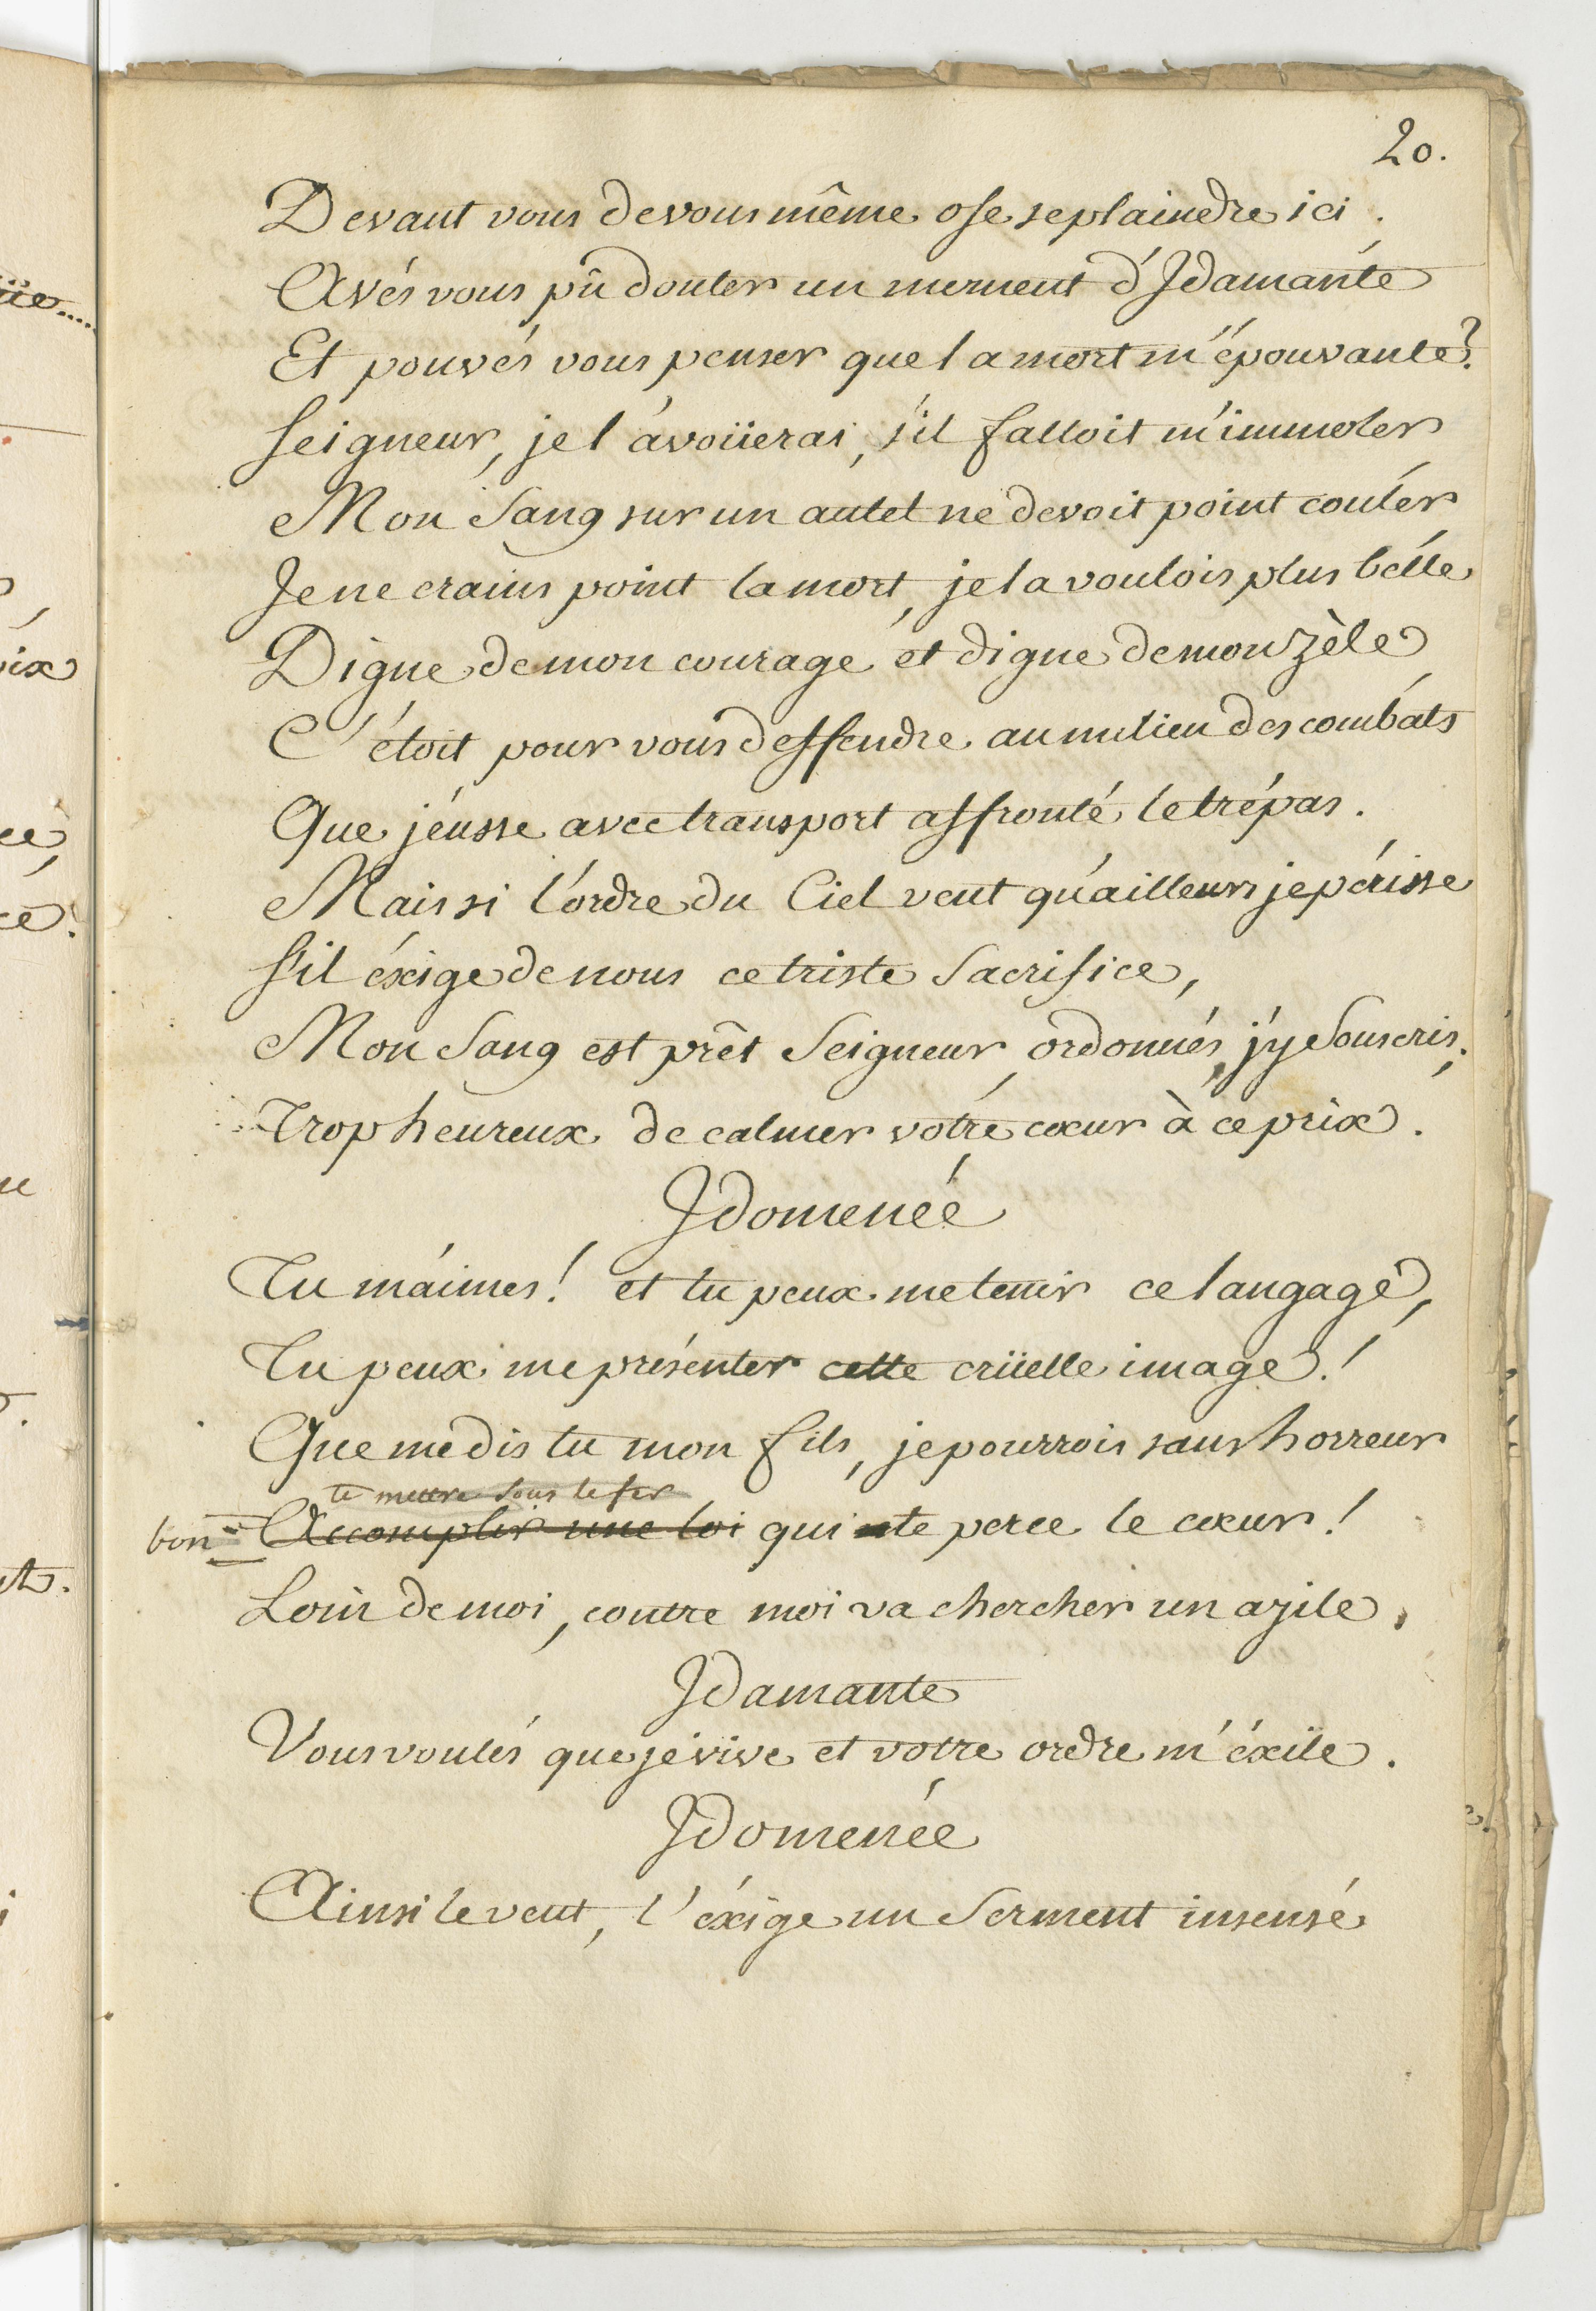 20.
Devant vous de vous même ose se plaindre ici.
Avés vous pû douter un moment d'Idamante
Et pouvés vous penser que la mort m'épouvante?
Seigneur, je l'avoüerai, s'il falloit m'immoler
Mon Sang sur un autel ne devoit point couler
Je ne crains point la mort, je la voulois plus belle
Digne de mon courage et digne de mon Zèle
C'étoit pour vous deffendre au milieu des combats
Que j'eusse avec transport affronté le trépas.
Mais si l'ordre du Ciel veut qu'ailleurs je périsse
S'il éxige de nous ce triste Sacrifice,
Mon Sang est prêt Seigneur, ordonnés, j'y Souscris;
Trop heureux de calmer votre cœur à ce prix.
Idomenée
Tu m'aimes! et tu peux me tenir ce langage,
Tu peux me présenter cette crüelle image!
Que me dis tu mon fils, je pourrois sans horreur
te mettre sous le fer
bon = Accomplir une loi qui te perce le cœur!
Loin de moi, contre moi va chercher un azile,
Idamante
Vous voulés que je vive et votre ordre m'éxile.
Idomenée
Ainsi le veut, l'éxige un Serment insensé